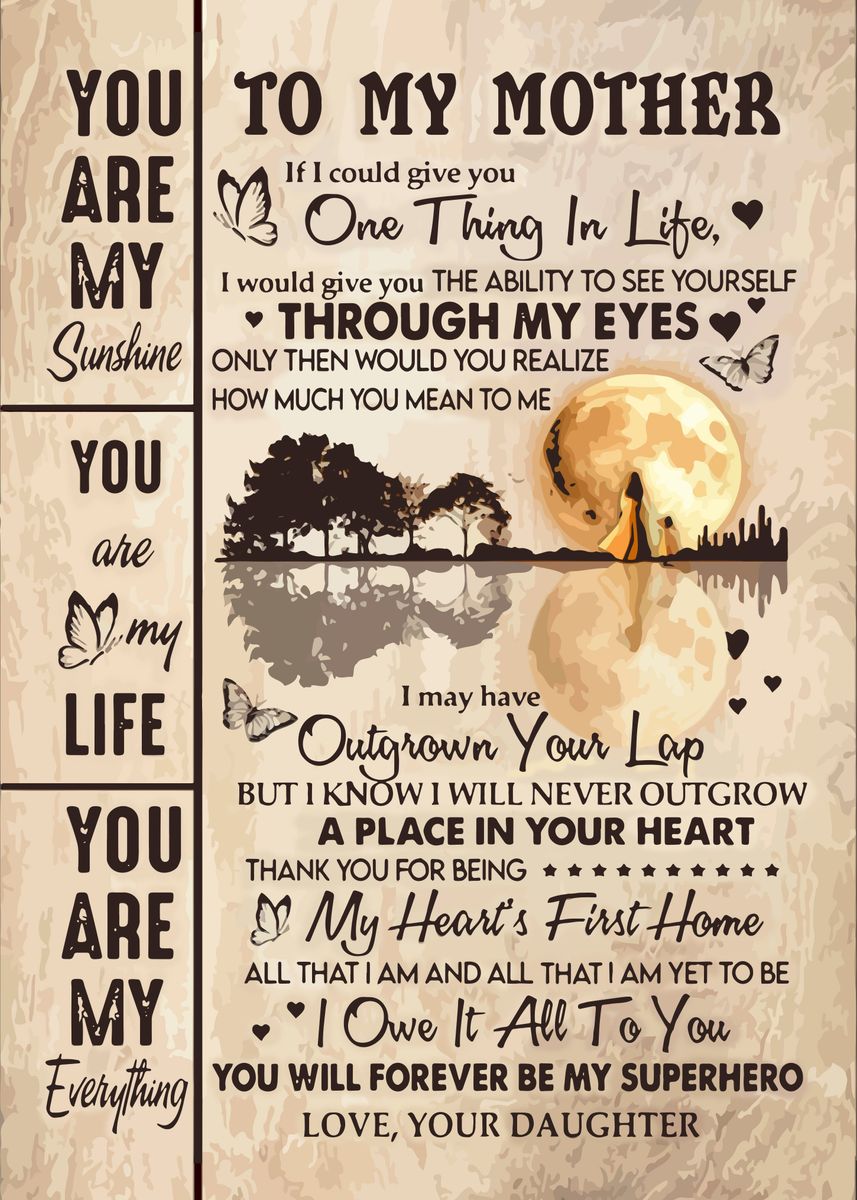 YOU
ARE
MY
Sunshine
YOU
are
my
LIFE
YOU
ARE
MY
Everything
TO MY MOTHER
If I could give you
One Thing In Life,
I would give you THE ABILITY TO SEE YOURSELF
THROUGH MY EYES
ONLY THEN WOULD YOU REALIZE
HOW MUCH YOU MEAN TO ME
I may have
Outgrown Your Lap
BUT I KNOW I WILL NEVER OUTGROW
A PLACE IN YOUR HEART
THANK YOU FOR BEING
My Heart's First Home
ALL THAT I AM AND ALL THAT I AM YET TO BE
I Owe It All To You
YOU WILL FOREVER BE MY SUPERHERO
LOVE, YOUR DAUGHTER